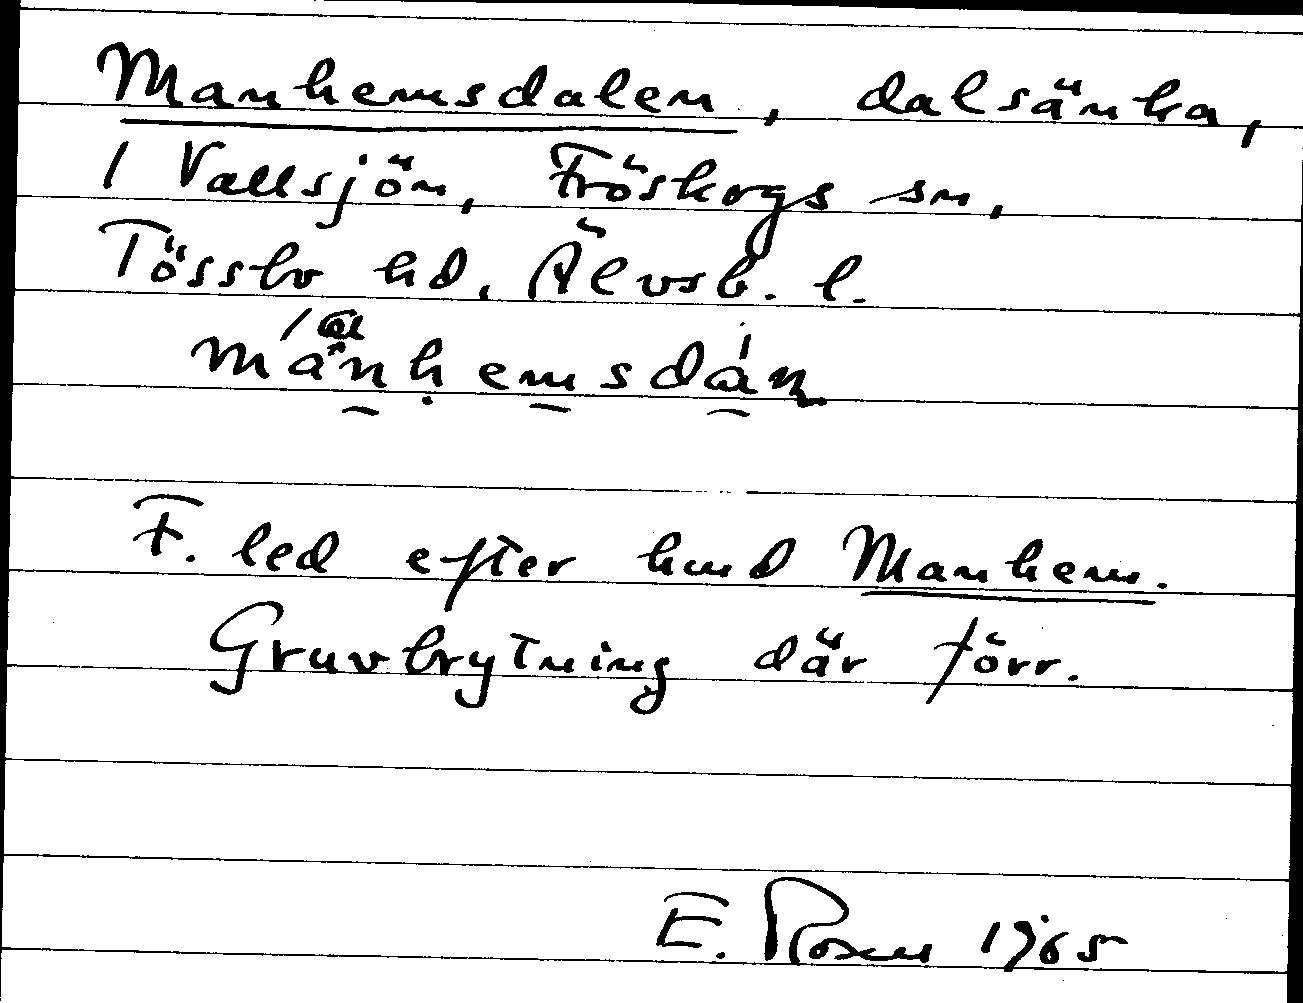 Manhemsdalen, dalsänka,
1 Vallsjön, Fröskogs sn,
Tössbo hd, Älvsb. l.
F. led efter hmd Manhem.
Gruvbrytning där förr.
E. Rosen 1965